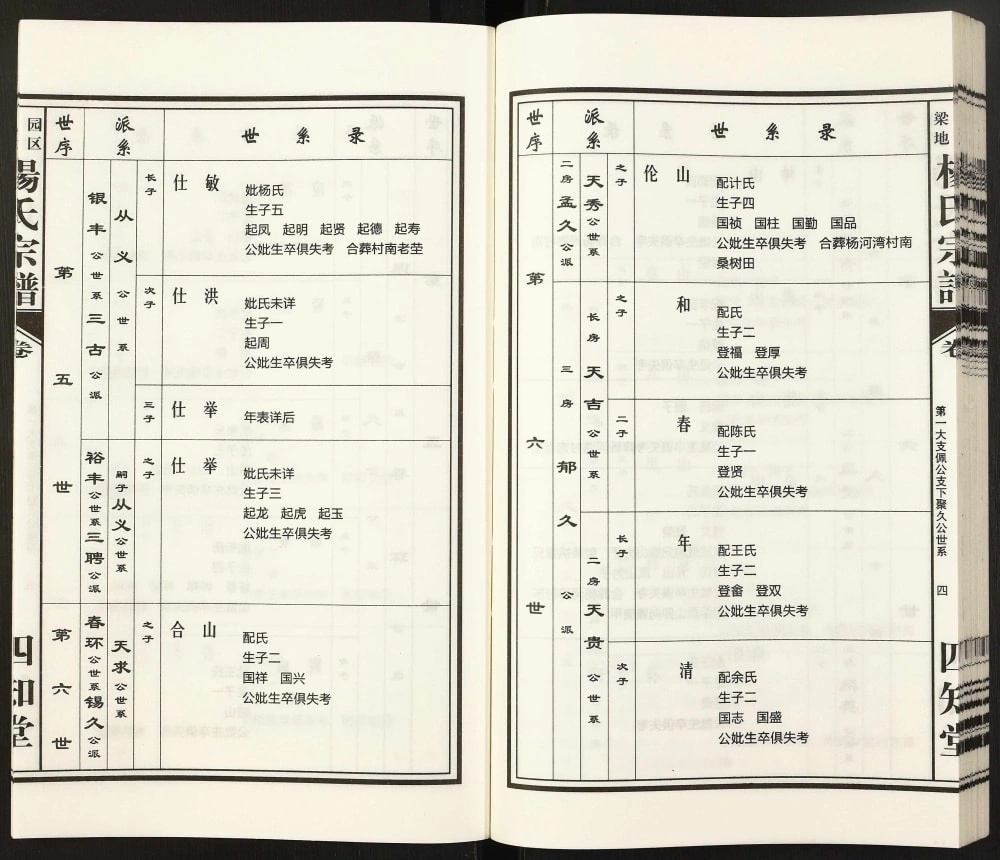 园区
杨氏宗谱
卷
四知堂
世序 派系 世系录
第五世
银丰公世系三古公派
从义公世系
长子
仕敏
妣杨氏
生子五
起凤 起明 起贤 起德 起寿
公妣生卒俱失考 合葬村南老茔
次子
仕洪
妣氏未详
生子一
起周
公妣生卒俱失考
三子
仕举
年表详后
裕丰公世系三聘公派
嗣子从义公世系
之子
仕举
妣氏未详
生子三
起龙 起虎 起玉
公妣生卒俱失考
第六世
春环公世系锡久公派
天求公世系
之子
合山
配氏
生子二
国祥 国兴
公妣生卒俱失考
世序 派系 世系录
第六世
二房孟久公派
天秀公世系
之子
伦山
配计氏
生子四
国祯 国柱 国勤 国品
公妣生卒俱失考 合葬杨河湾村南
桑树田
三房郁久公派
长房天吉公世系
之子
和
配氏
生子二
登福 登厚
公妣生卒俱失考
二子
春
配陈氏
生子一
登贤
公妣生卒俱失考
二房天贵公世系
长子
年
配王氏
生子二
登畲 登双
公妣生卒俱失考
次子
清
配余氏
生子二
国志 国盛
公妣生卒俱失考
梁地
杨氏宗谱
卷
第一大支佩公支下聚久公世系
四
四知堂